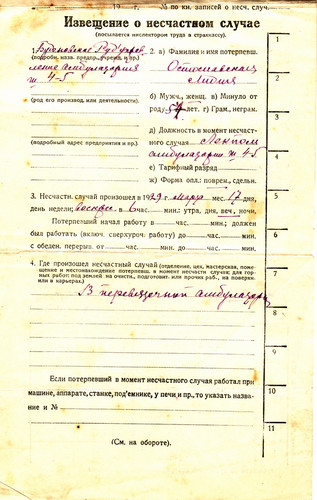 19 г. № по кн. записей о несч. случ.
Извещение о несчастном случае
(посылается инспектором труда в страхкассу).
(подробн. назв. предпр., учрежд. и пр.)
амбулатория
№ 4-5
(род его производ. или деятельности).
(подробный адрес предприятия и пр.)
2. а) Фамилия и имя потерпевш.
Лидия
б) Мужч., женщ. в) Минуло от
роду 54 лет. г) Грам., неграм.
д) Должность в момент несчаст-
ного случая Лекпом
амбулатории № 4-5
е) Тарифный разряд
ж) Форма опл.: поврем., сдельн.
3. Несчастн. случай произошел в 1929 г. марта мес. 17 дня,
день недели: воскрес. в 6 час. мин.: утра, дня, веч., ночи,
Потерпевший начал работу в час. мин.; должен
был работать (включ. сверхуроч. работу) до час. мин.
с обеден. перерыв. от час. мин. до час. мин.
4. Где произошел несчастный случай (отделение, цех, мастерская, поме-
щение и местонахождение потерпевш. в момент несчастн. случая; для гор-
ных работ под землей на очистн., подготовит. или прочих раб., на поверхн.
или в карьерах.)
В перевязочной амбулатории
Если потерпевший в момент несчастного случая работал при
машине, аппарате, станке, под'емнике, у печи и пр., то указать назва-
ние и №
(См. на обороте).
1
2
3
4
5
6
7
8
9
10
11